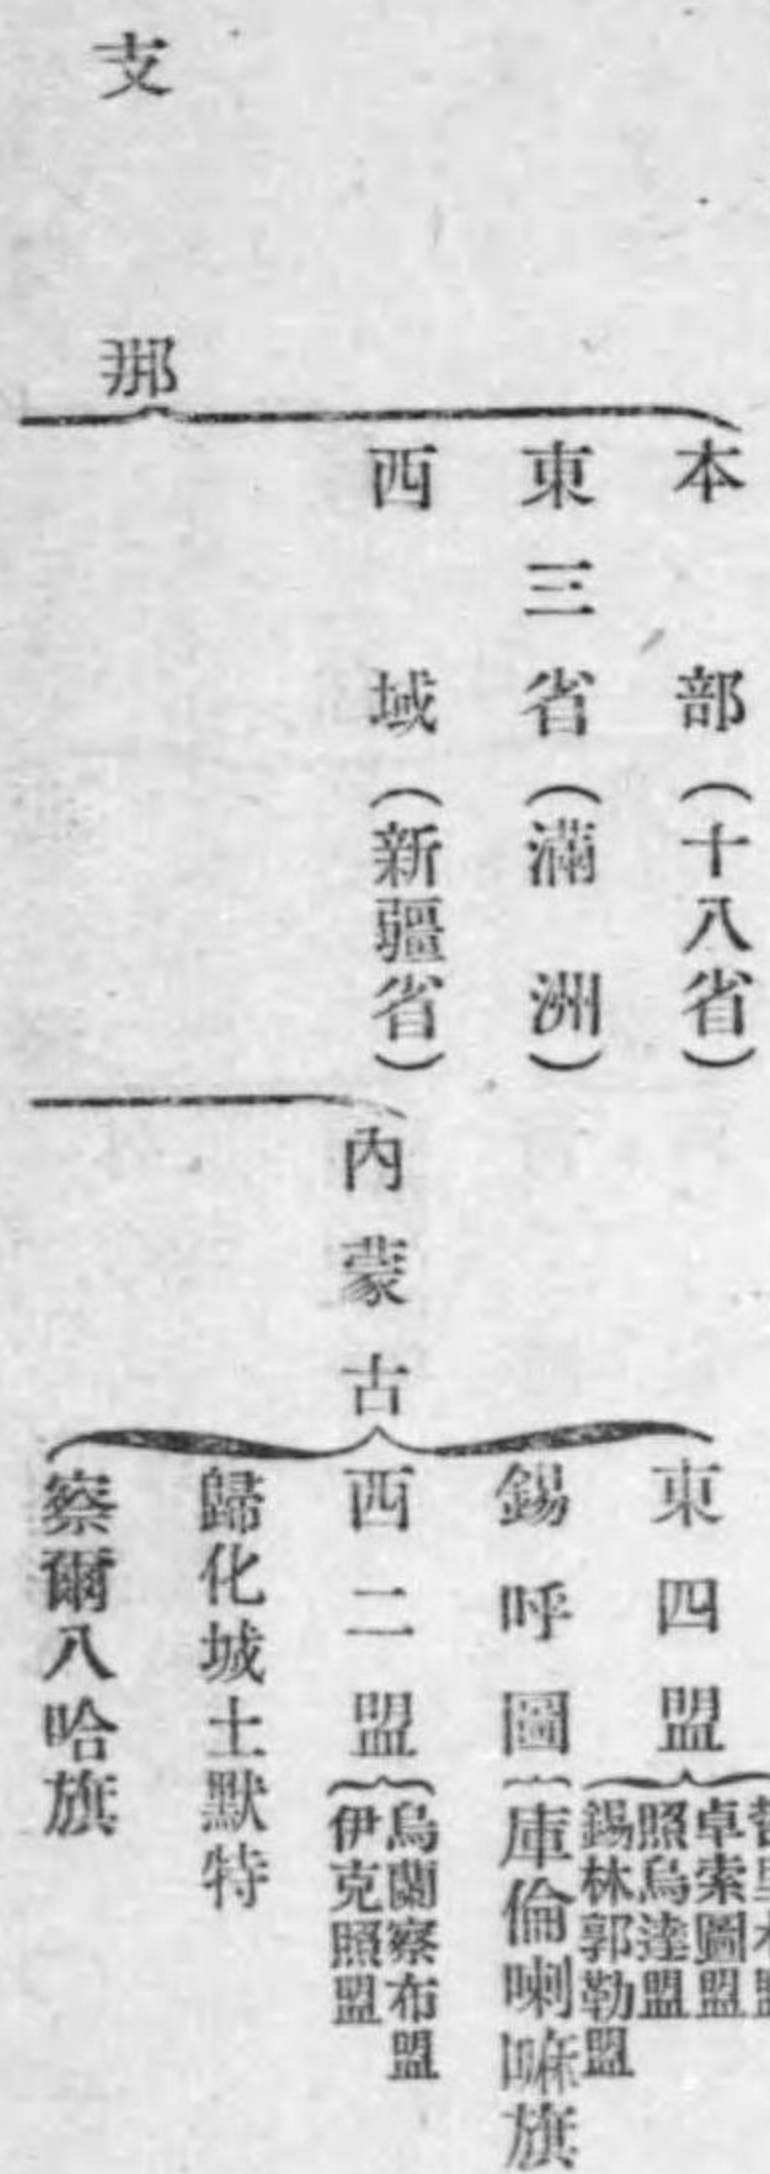 支那
本部（十八省）
東三省（滿洲）
西域（新疆省）
內蒙古
東四盟
卓索圖盟
照烏達盟
錫林郭勒盟
錫呼圖
庫倫喇嘛旗
西二盟
烏蘭察布盟
伊克照盟
歸化城土默特
察爾八哈旗